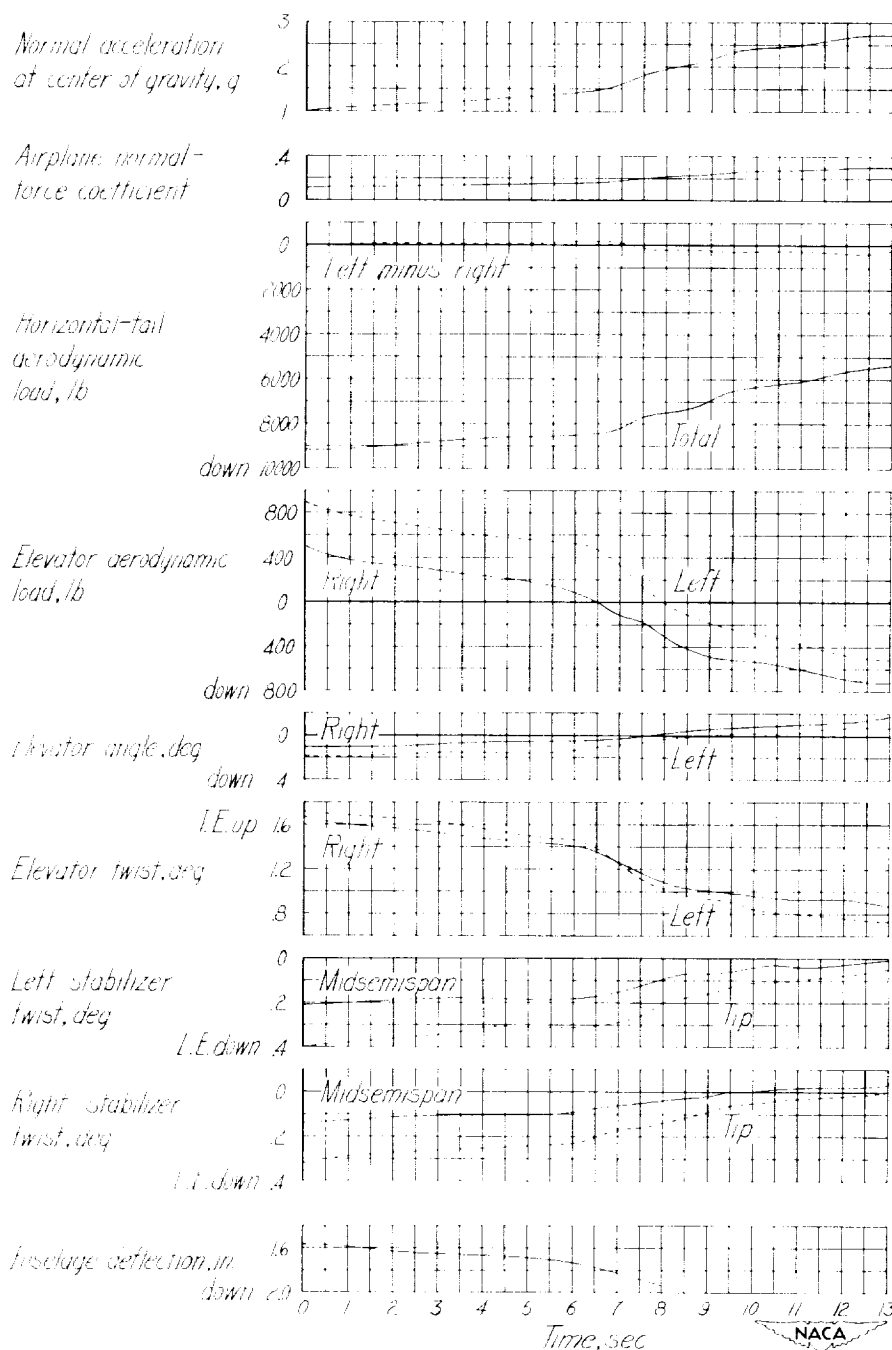 Normal acceleration
at center of gravity, g
3
2
1
Airplane normal-
force coefficient
.4
0
Horizontal-tail
aerodynamic
load, lb
0
2000
4000
6000
8000
down 10000
Left minus right
Total
Elevator aerodynamic
load, lb
800
400
0
400
down 800
Right
Left
Elevator angle, deg
0
down 4
Right
Left
Elevator twist, deg
up 1.6
1.2
.8
Right
Left
Left stabilizer
twist, deg
0
.2
L.E. down .4
Midsemispan
Tip
Right stabilizer
twist, deg
0
.2
down .4
Midsemispan
Tip
Fuselage deflection, in.
1.6
down 2.0
0 1 2 3 4 5 6 7 8 9 10 11 12 13
Time, sec
NACA